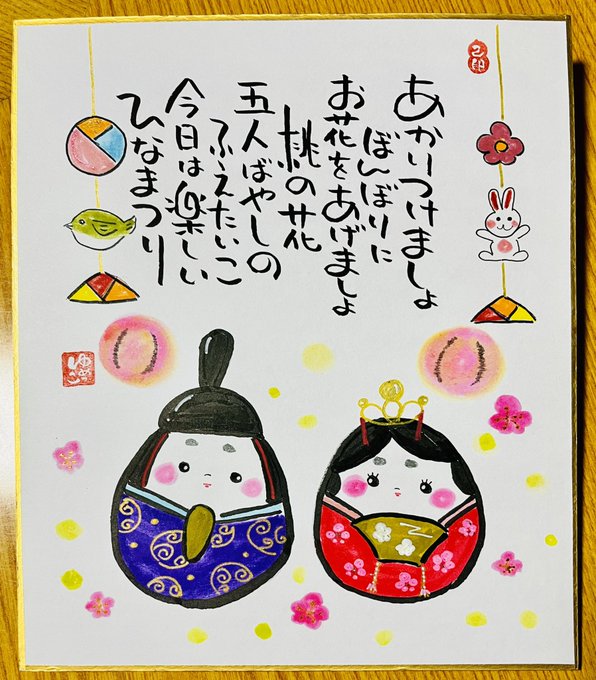 あかりつけましょ
ぼんぼりに
お花をあげましょ
桃の花
五人ばやしの
ふえたいこ
今日は楽しい
ひなまつり